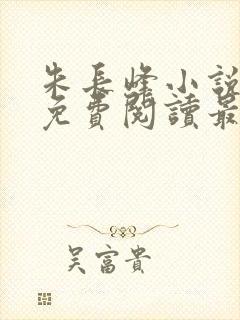 朱長峰小說
免費閱讀最
吳富貴